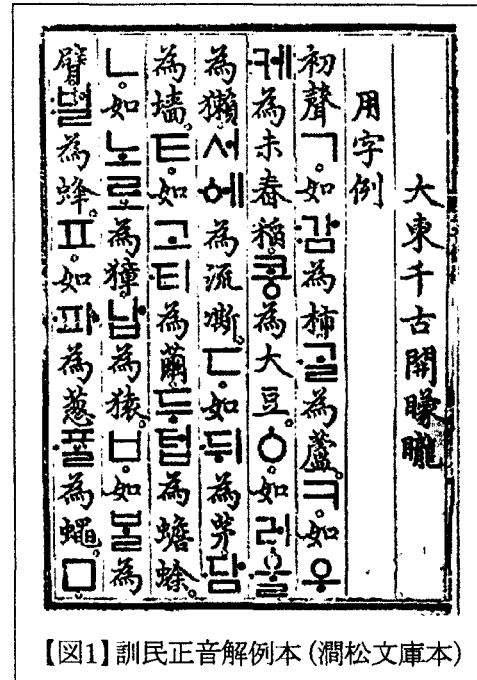 大東千古開矇矓
用字例
初聲ㄱ。如:감為柿。ᄀᆞᆯ為蘆。ㅋ。如우
케為未舂稻。콩為大豆。ㆁ。如러울
為獺。서ᅌᅦ為流凘。ㄷ。如뒤為茅。담
為墻。ㅌ。如고티為繭。두텁為蟾蜍。
ㄴ。如노로為獐。납為猿。ㅂ。如ᄇᆞᆯ為
臂。:벌為蜂。ㅍ。如파為葱。ᄑᆞᆯ為蠅。ㅁ
【図1】訓民正音解例本(澗松文庫本)